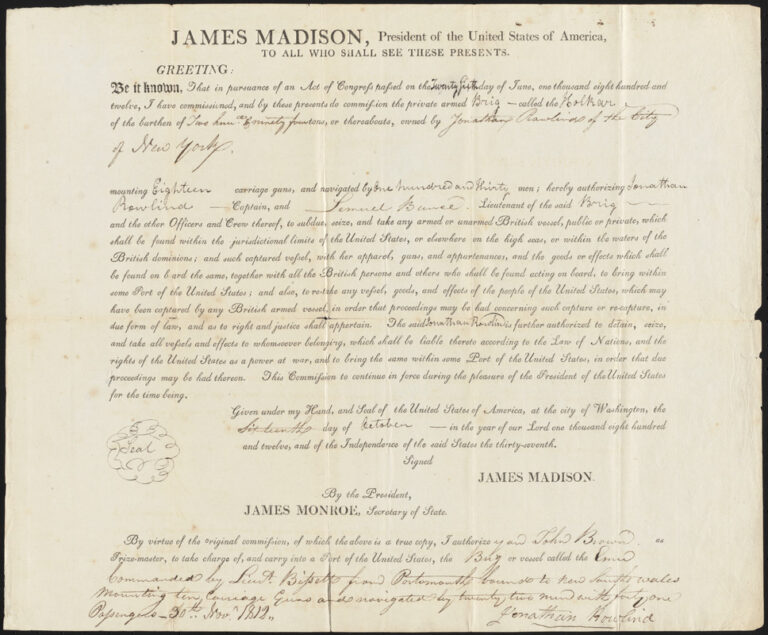 JAMES MADISON, President of the United States of America,
TO ALL WHO SHALL SEE THESE PRESENTS.
GREETING:
Be it known, That in pursuance of an Act of Congress passed on the Twenty Sixth day of June, one thousand eight hundred and
twelve, I have commissioned, and by these presents do commission the private armed Brig called the Holkar
of the burthen of Two hund & ninety four tons, or thereabouts, owned by Jonathan Rowlind of the City
of New York.
mounting Eighteen carriage guns, and navigated by One hundred and thirty men; hereby authorizing Jonathan
Rowlind Captain, and Samuel Lieutenant of the said Brig
and the other Officers and Crew thereof, to subdue, seize, and take any armed or unarmed British vessel, public or private, which
shall be found within the jurisdictional limits of the United States, or elsewhere on the high seas, or within the waters of the
British dominions; and such captured vessel, with her apparel, guns, and appurtenances, and the goods or effects which shall
be found on b ard the same, together with all the British persons and others who shall be found acting on board, to bring within
some Port of the United States; and also, to re-take any vessel, goods, and effects of the people of the United States, which may
have been captured by any British armed vessel, in order that proceedings may be had concerning such capture or re-capture, in
due form of law, and as to right and justice shall appertain. The said Jonathan Rowlind is further authorized to detain, seize,
and take all vessels and effects to whomsoever belonging, which shall be liable thereto according to the Law of Nations, and the
rights of the United States as a power at war, and to bring the same within some Port of the United States, in order that due
proceedings may be had thereon. This Commission to continue in force during the pleasure of the President of the United States
for the time being.
Given under my Hand, and Seal of the United States of America, at the city of Washington, the
Sixteenth day of October in the year of our Lord one thousand eight hundred
and twelve, and of the Independence of the said States the thirty-seventh.
Seal
Signed
JAMES MADISON.
By the President,
JAMES MONROE, Secretary of State.
By virtue of the original commission, of which the above is a true copy, I authorize you John Brown as
Prize-master, to take charge of, and carry into a Port of the United States, the Brig or vessel called the Emu
Commanded by Lieut. Bissett from Portsmouth bound to New South Wales
Mounting ten Carriage Guns and navigated by twenty two men with forty one
Passengers - 30th Nov. 1812.
Jonathan Rowlind